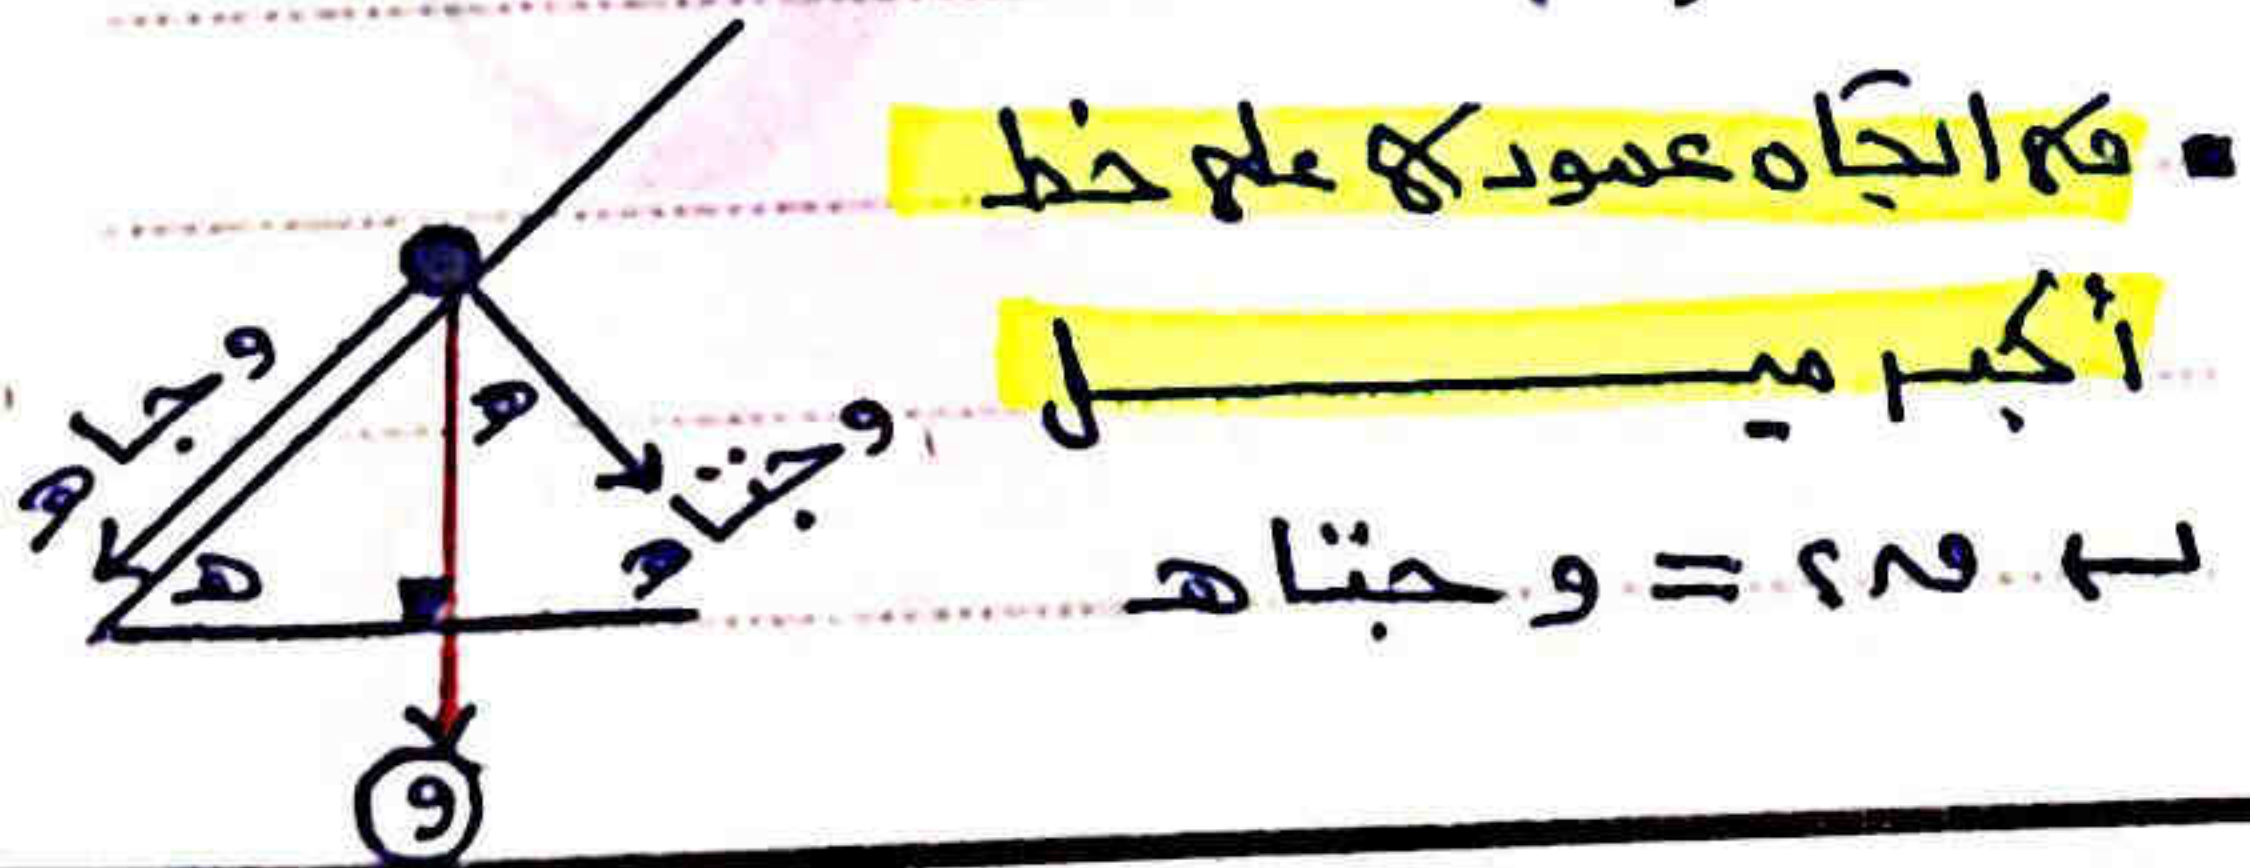 ▪ في اتجاه عمودي على خط
أكبر ميل
↦ ق٢ = و جتا هـ
و جا هـ
هـ
و جتا هـ
هـ
و